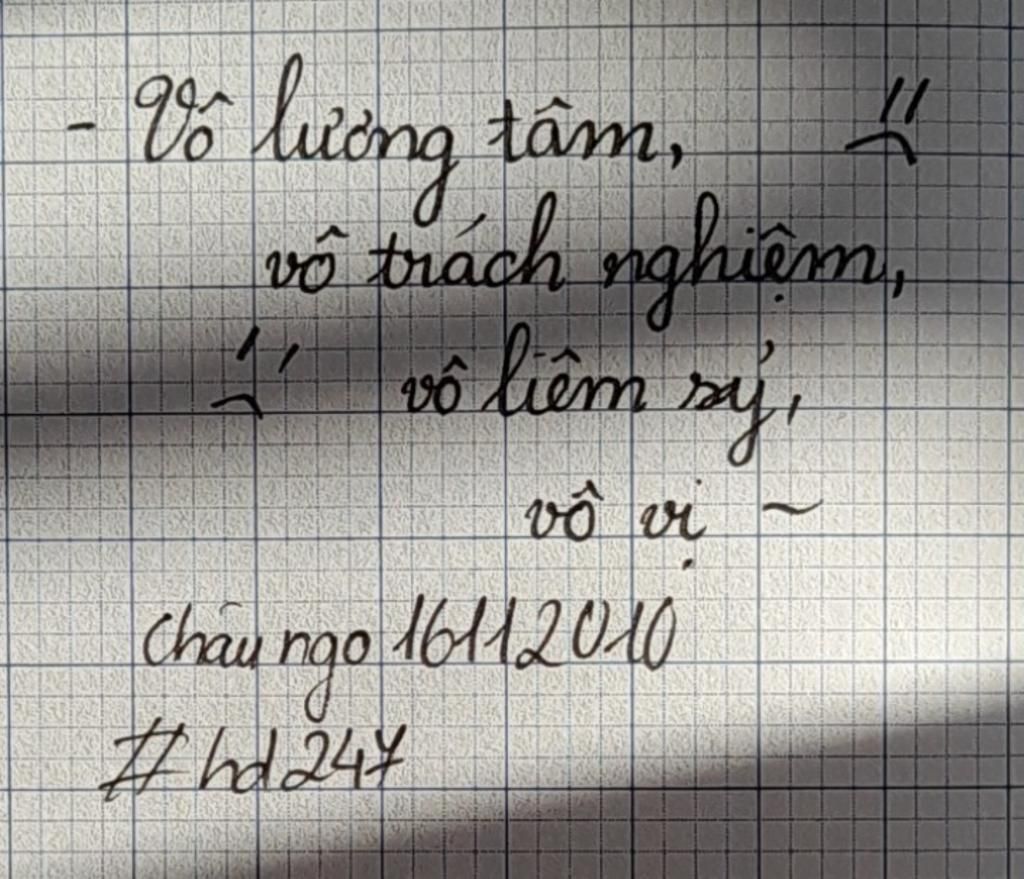 - Vô lương tâm,
vô trách nghiệm,
vô liêm sỷ,
vô vị ~
châu ngo 16112010
#hd247